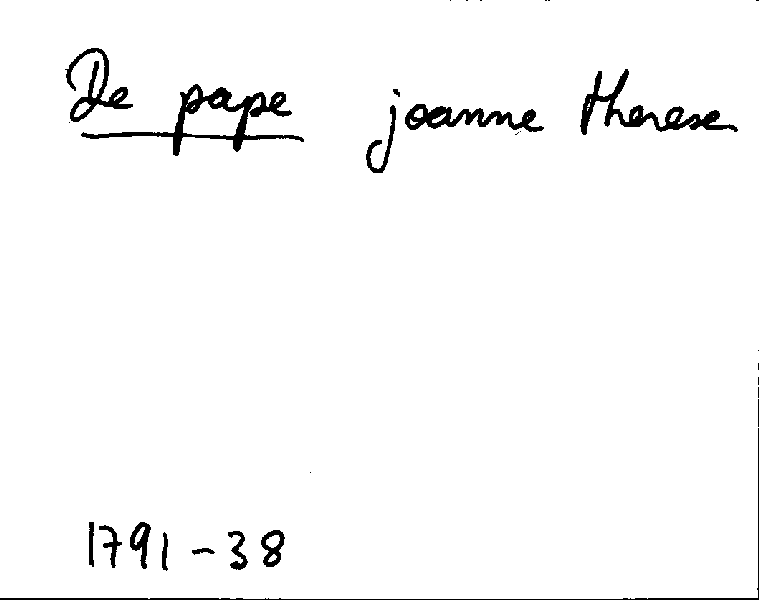 De pape joanne therese
1791-38